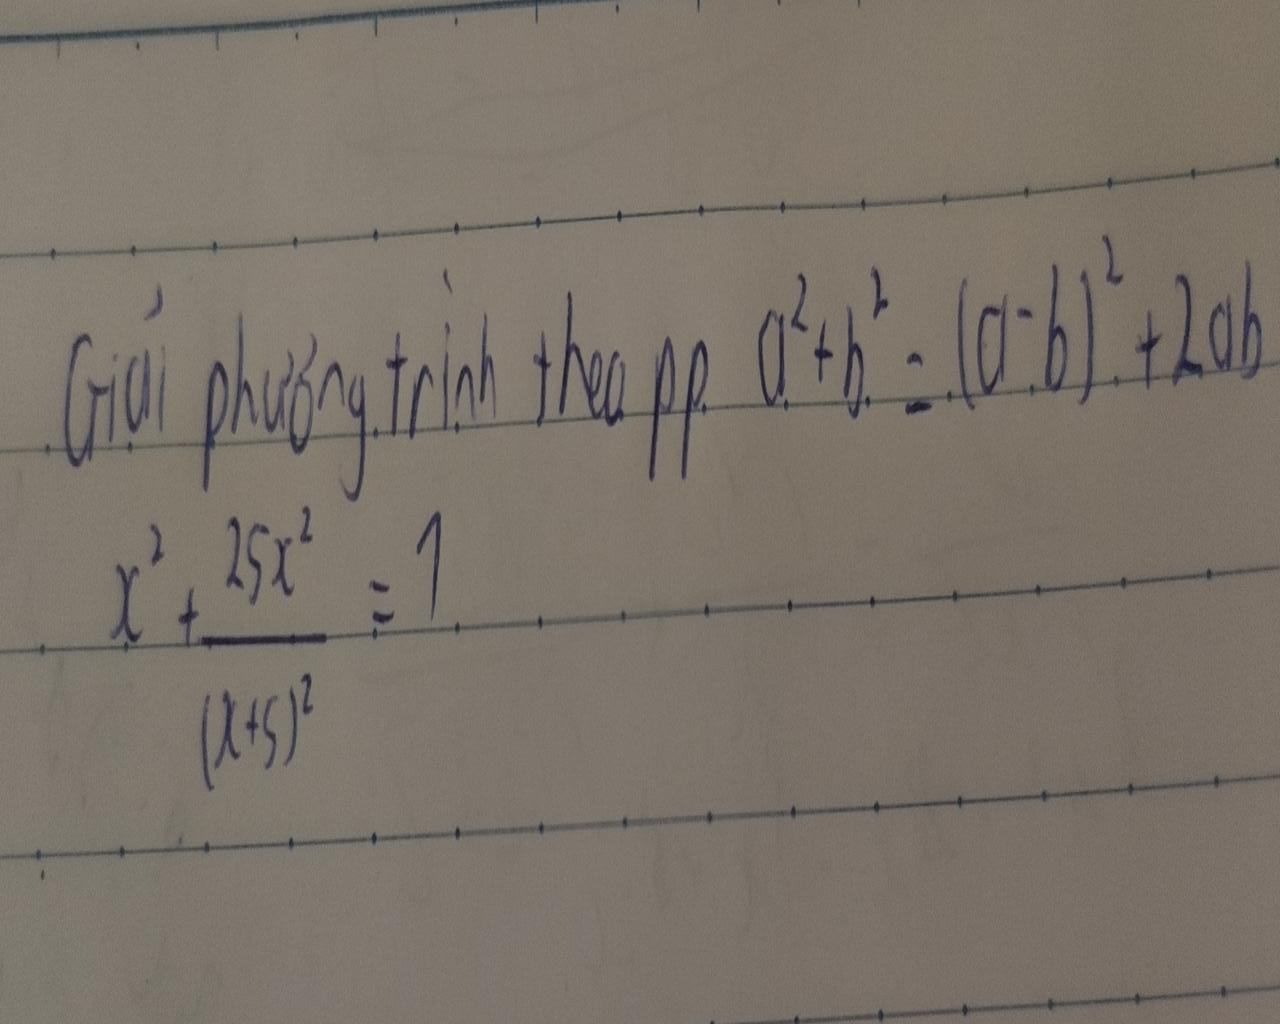 Giải phương trình theo pp a²+b² = (a-b)² + 2ab
x² + 25x²/(x+5)² = 1